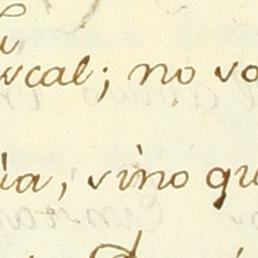 ucal; no vo
ia, vino qu